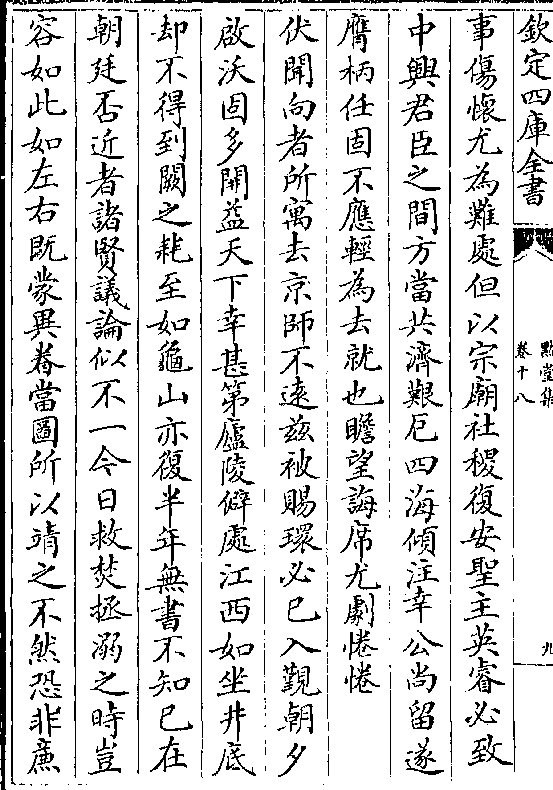 欽定四庫全書
默堂集
卷十八
九
事傷懷尤為難處但以宗廟社稷復安聖主英睿必致
中興君臣之間方當共濟艱厄四海傾注幸公尚留遂
膺柄任固不應輕為去就也瞻望誨席尤劇惓惓
伏聞向者所寓去京師不遠兹被賜環必已入覲朝夕
啟沃固多開益天下幸甚第廬陵僻處江西如坐井底
却不得到闕之耗至如龜山亦復半年無書不知已在
朝廷否近者諸賢議論似不一今日救焚拯溺之時豈
容如此如左右既蒙異眷當圖所以靖之不然恐非廉